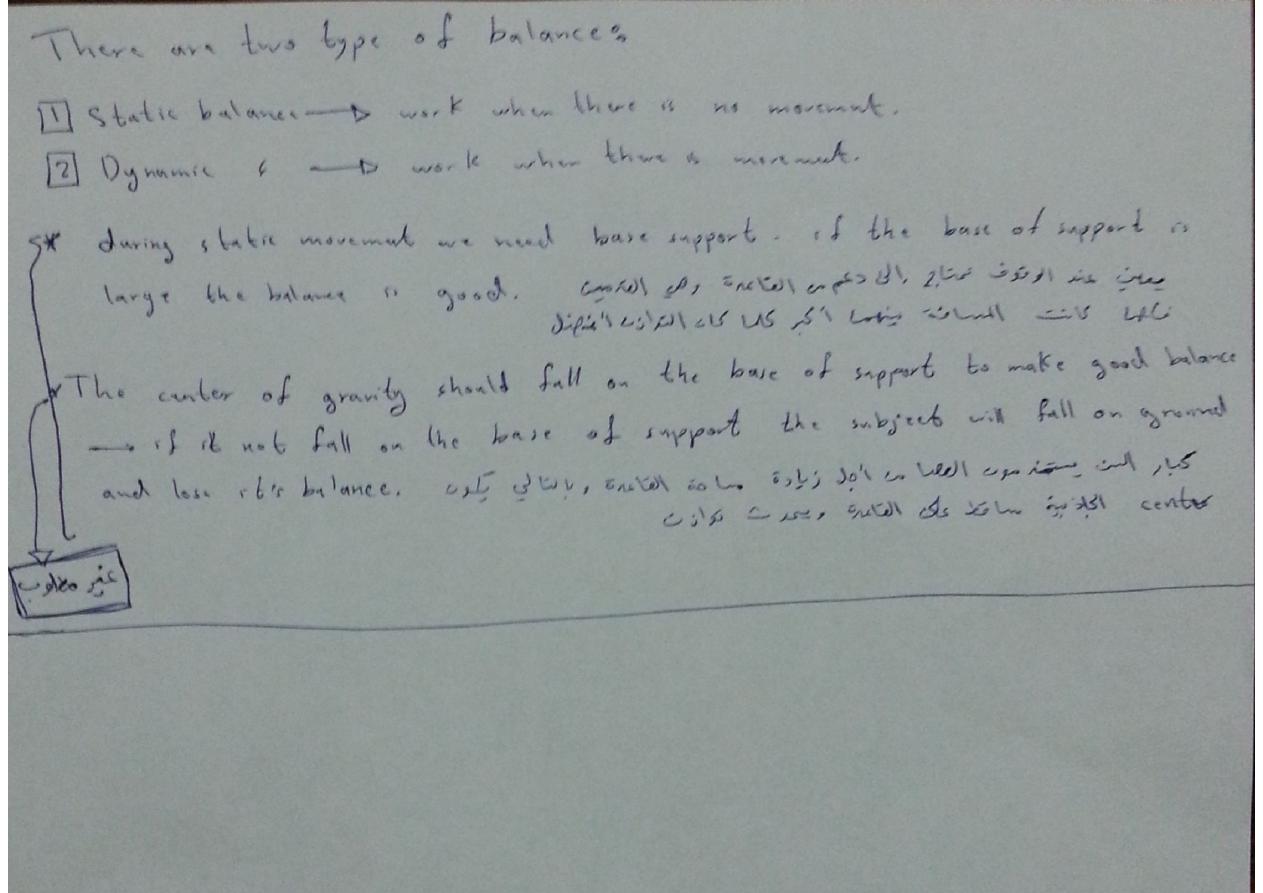 There are two type of balance:
1 Static balance → work when there is no movement.
2 Dynamic " → work when there is movement.
* during static movement we need base support. if the base of support is
large the balance is good. يعني عند الوقوف نحتاج الى دعم من القاعدة وهي القدمين
فكلما كانت المسافة بينهما أكبر كلما كان التوازن أفضل
* The center of gravity should fall on the base of support to make good balance
→ if it not fall on the base of support the subject will fall on ground
and lose it's balance. كبار السن يستخدمون العصا من أجل زيادة مساحة القاعدة وبالتالي يكون
center الجاذبية ساقط على القاعدة ويحدث توازن
غير مطلوب